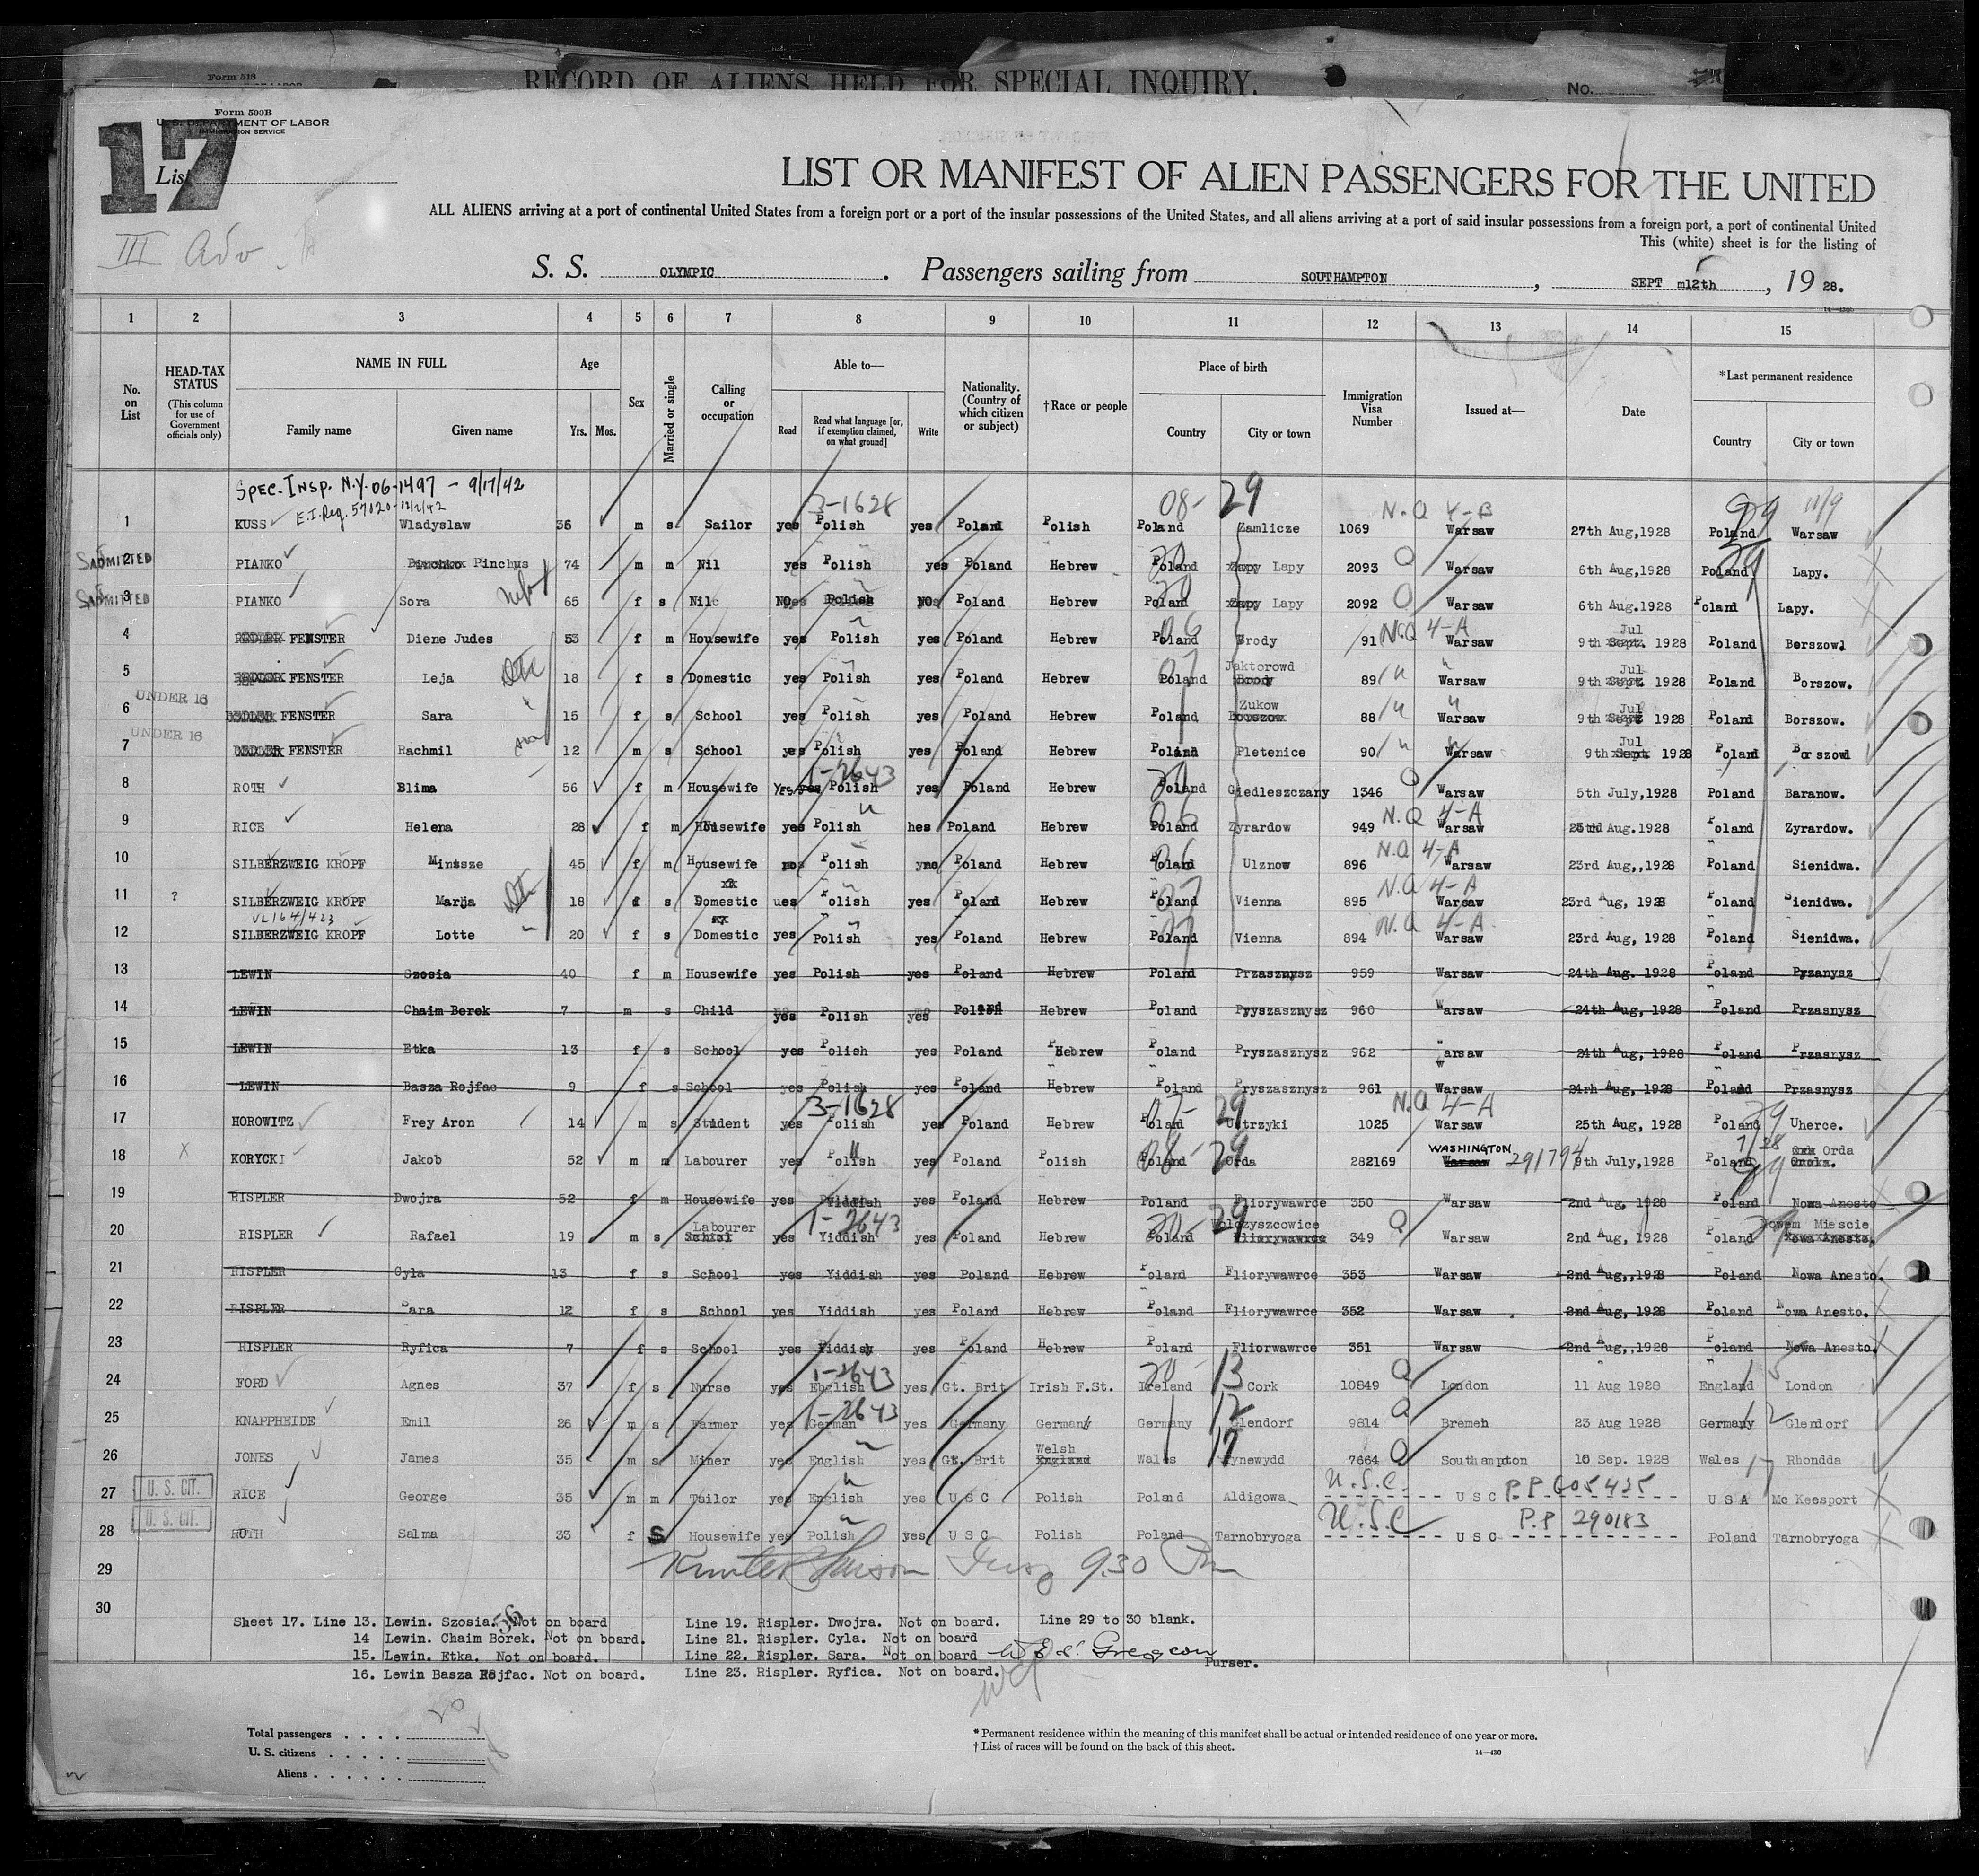 Form 518
RECORD OF ALIENS HELD FOR SPECIAL INQUIRY.
No.
Form 500B
U. S. DEPARTMENT OF LABOR
IMMIGRATION SERVICE
17
List
III Adv.
LIST OR MANIFEST OF ALIEN PASSENGERS FOR THE UNITED
ALL ALIENS arriving at a port of continental United States from a foreign port or a port of the insular possessions of the United States, and all aliens arriving at a port of said insular possessions from a foreign port, a port of continental United
This (white) sheet is for the listing of
S. S. OLYMPIC. Passengers sailing from SOUTHAMPTON, SEPT m12th, 19 28.
14—430b
1 2 3 4 5 6 7 8 9 10 11 12 13 14 15
No. on List
HEAD-TAX STATUS (This column for use of Government officials only)
NAME IN FULL
Family name Given name
Age
Yrs. Mos.
Sex
Married or single
Calling or occupation
Able to—
Read
Read what language [or, if exemption claimed, on what ground]
Write
Nationality. (Country of which citizen or subject)
†Race or people
Place of birth
Country City or town
Immigration Visa Number
Issued at—
Date
*Last permanent residence
Country City or town
SPEC. INSP. N.Y. 06-1497 - 9/17/42
E.I. Reg. 57020-12/2/42
3-1628 08- 29 N.Q 4-B 29 11/9
1 KUSS Wladyslaw 36 m s Sailor yes Polish yes Poland Polish Poland Zamlicze 1069 Warsaw 27th Aug,1928 Poland Warsaw
ADMITTED 2 PIANKO Pinchus 74 m m Nil yes Polish yes Poland Hebrew Poland Lapy 2093 Q Warsaw 6th Aug,1928 Poland Lapy.
ADMITTED 3 PIANKO Sora 65 f s Nil NO Polish NO Poland Hebrew Poland Lapy 2092 Q Warsaw 6th Aug.1928 Poland Lapy.
4 FENSTER Diene Judes 53 f m Housewife yes Polish yes Poland Hebrew Poland Brody 91 N.Q 4-A Warsaw 9th Jul 1928 Poland Borszow.
5 FENSTER Leja 18 f s Domestic yes Polish yes Poland Hebrew Poland Jaktorowd 89 Warsaw 9th Jul 1928 Poland Borszow.
UNDER 16
6 FENSTER Sara 15 f s School yes Polish yes Poland Hebrew Poland Zukow 88 Warsaw 9th Jul 1928 Poland Borszow.
UNDER 16
7 FENSTER Rachmil 12 m s School yes Polish yes Poland Hebrew Poland Pletenice 90 Warsaw 9th Jul 1928 Poland Borszowd
1-2643
8 ROTH Blima 56 f m Housewife YES Polish yes Poland Hebrew Poland Giedleszczany 1346 Q Warsaw 5th July,1928 Poland Baranow.
9 RICE Helena 28 f m Housewife yes Polish hes Poland Hebrew Poland Zyrardow 949 N.Q 4-A Warsaw Aug.1928 Poland Zyrardow.
10 SILBERZWEIG KROPF Mintsze 45 f m Housewife Polish Poland Hebrew Poland Ulznow 896 N.Q 4-A Warsaw 23rd Aug,,1928 Poland Sienidwa.
11 ? SILBERZWEIG KROPF Marja 18 f s Domestic ues Polish yes Poland Hebrew Poland Vienna 895 N.Q 4-A Warsaw 23rd Aug, 1928 Poland Sienidwa.
VL164/423
12 SILBERZWEIG KROPF Lotte 20 f s Domestic yes Polish yes Poland Hebrew Poland Vienna 894 N.Q 4-A Warsaw 23rd Aug, 1928 Poland Sienidwa.
13 LEWIN Szosia 40 f m Housewife yes Polish yes Poland Hebrew Poland Przasznysz 959 Warsaw 24th Aug. 1928 Poland Pyzanysz
14 LEWIN Chaim Berek 7 m s Child yes Polish yes Poland Hebrew Poland Pyyszasznysz 960 Warsaw 24th Aug, 1928 Poland Przasnysz
15 LEWIN Etka 13 f s School yes Polish yes Poland Hebrew Poland Pryszasznysz 962 Warsaw 24th Aug, 1928 Poland Przasnysz
16 LEWIN Basza Rojfac 9 f s School yes Polish yes Poland Hebrew Poland Pryszasznysz 961 Warsaw 24rh Aug, 1928 Poland Przasnysz
3-1628 07- 29 N.Q 4-A 29
17 HOROWITZ Frey Aron 14 m s Student yes Polish yes Poland Hebrew Poland Ustrzyki 1025 Warsaw 25th Aug, 1928 Poland Uherce.
08- 29
18 X KORYCKI Jakob 52 m m Labourer yes Polish yes Poland Polish Poland Orda 282169 WASHINGTON 291794 9th July,1928 Poland Orda
19 RISPLER Dwojra 52 f m Housewife yes Yiddish yes Poland Hebrew Poland Fliorywawrce 350 Warsaw 2nd Aug, 1928 Poland Nowa Anesto
1-2643 29
20 RISPLER Rafael 19 m s Labourer yes Yiddish yes Poland Hebrew Poland Wolczyszcowice 349 Q Warsaw 2nd Aug, 1928 Poland Nowem Miescie
21 RISPLER Cyla 13 f s School yes Yiddish yes Poland Hebrew Poland Fliorywawrce 353 Warsaw 2nd Aug,,1928 Poland Nowa Anesto.
22 RISPLER Sara 12 f s School yes Yiddish yes Poland Hebrew Poland Fliorywawrce 352 Warsaw. 2nd Aug, 1928 Poland Nowa Anesto.
23 RISPLER Ryfica 7 f s School yes Yiddish yes Poland Hebrew Poland Fliorwawrce 351 Warsaw 2nd Aug,,1928 Poland Nowa Anesto.
1-2643 13
24 FORD Agnes 37 f s Nurse yes English yes Gt. Brit Irish F.St. Ireland Cork 10849 Q London 11 Aug 1928 England London
1-2643 12
25 KNAPPHEIDE Emil 26 m s Farmer yes German yes Germany Germany Germany Glendorf 9814 Q Bremen 23 Aug 1928 Germany Glendorf
17
26 JONES James 35 m s Miner yes English yes Gt. Brit Welsh Wales Tynewydd 7664 Q Southampton 10 Sep. 1928 Wales Rhondda
U. S. CIT. 27 RICE George 35 m m Tailor yes English yes U S C Polish Poland Aldigowa U.S.C. U S C P.P 605425 U S A Mc Keesport
U. S. CIT. 28 ROTH Salma 33 f S Housewife yes Polish yes U S C Polish Poland Tarnobryoga U.S.C U S C P.P 290183 Poland Tarnobryoga
29
9.30 Pm
30
Sheet 17. Line 13. Lewin. Szosia. Not on board
14 Lewin. Chaim Borek. Not on board.
15. Lewin. Etka. Not on board.
16. Lewin Basza Rojfac. Not on board.
56
Line 19. Rispler. Dwojra. Not on board.
Line 21. Rispler. Cyla. Not on board
Line 22. Rispler. Sara. Not on board
Line 23. Rispler. Ryfica. Not on board.
Line 29 to 30 blank.
Purser.
Total passengers
U. S. citizens
Aliens
* Permanent residence within the meaning of this manifest shall be actual or intended residence of one year or more.
† List of races will be found on the back of this sheet.
14—430